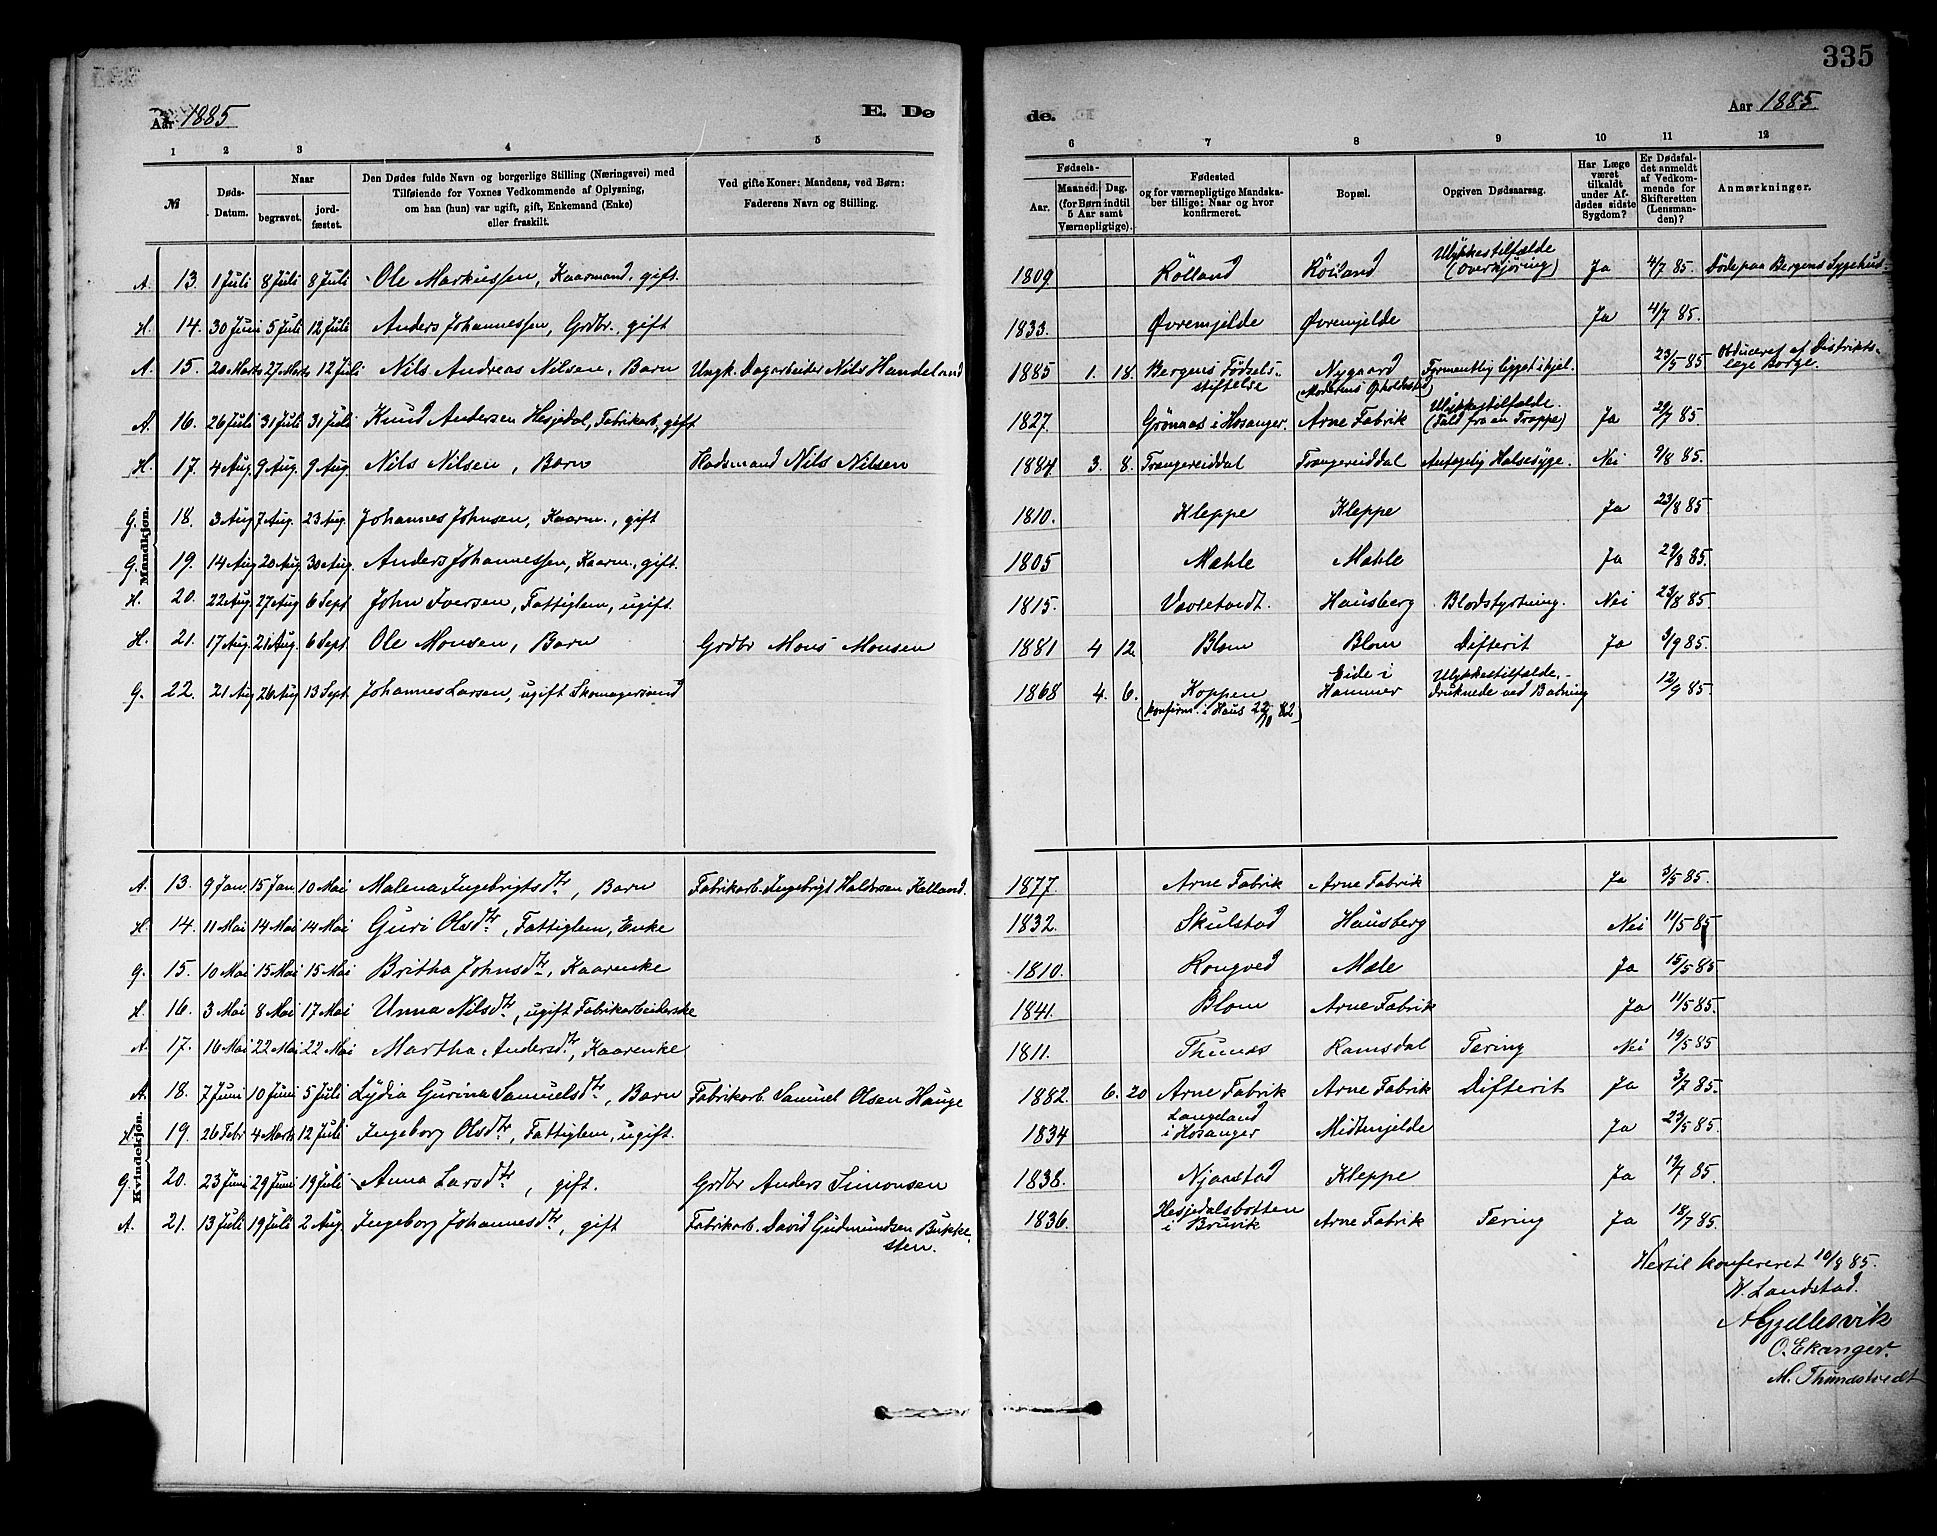 335
Aar 1885 E. Dø de. Aar 1885
1 2 3 4 5 6 7 8 9 10 11 12
№ Døds-Datum. Naar begravet. jordfæstet. Den Dødes fulde Navn og borgerlige Stilling (Næringsvei) med Tilføiende for Voxnes Vedkommende af Oplysning, om han (hun) var ugift, gift, Enkemand (Enke) eller fraskilt. Ved gifte Koner: Mandens, ved Børn: Faderens Navn og Stilling. Fødsels- Aar. Maaned. Dag. (for Børn indtil 5 Aar samt Værnepligtige). Fødested og for værnepligtige Mandskaber tillige: Naar og hvor konfirmeret. Bopæl. Opgiven Dødsaarsag. Har Læge været tilkaldt under Afdødes sidste Sygdom? Er Dødsfaldet anmeldt af Vedkommende for Skifteretten (Lensmanden)? Anmærkninger.
Mandkjøn.
A. 13. 1 Juli 8 Juli 8 Juli Ole Markussen, Kaarmand, gift. 1809. Rölland Röiland Ulykkestilfælde (Overkjøring) Ja 4/7 85. Døde paa Bergens Sygehus.
H. 14. 30 Juni 5 Juli 12 Juli Anders Johannessen, Grdbr., gift 1833. Øvremjelde Øvremjelde Ja 4/7 85.
A. 15. 20 Marts 27 Marts 12 Juli Nils Andreas Nilsen, Barn Ungk. Dagarbeider Nils Handeland 1885 1. 18. Bergens Fødselsstiftelse Nygaard (Moderens Opholdssted) Formentlig ligget ihjel. 23/5 85 Obduceret af Distriktslæge Borge.
A. 16. 26 Juli 31 Juli 31 Juli Knud Andersen Hesjedal, Fabrikarb., gift 1827. Grønaas i Hosanger. Arne Fabrik Ulykkestilfælde. (Fald fra en Trappe) Ja 29/7 85.
H. 17. 4 Aug. 9 Aug. 9 Aug. Nils Nilsen, Barn Hadsmand Nils Nilsen 1884 3. 8. Trangereiddal Trangereiddal Antagelig Halssyge. Nei 9/8 85.
G. 18. 3 Aug 7 Aug. 23 Aug. Johannes Johnsen, Kaarm., gift 1810. Kleppe Kleppe Ja 23/8 85
G. 19. 14 Aug 20 Aug. 30 Aug. Anders Johannessen, Kaarm., gift. 1805 Mæhle Mæhle Ja 29/8 85.
H. 20. 22 Aug. 27 Aug 6 Sept. John Iversen, Fattiglem, ugift. 1815. Vavletvedt. Hausberg Blodstyrtning. Nei 23/8 85.
H. 21. 17 Aug. 21 Aug. 6 Sept. Ole Monsen, Barn Grdbr Mons Monsen 1881 4 12 Blom Blom Difterit Ja 3/9 85.
G. 22. 21 Aug 26 Aug. 13 Sept. Johannes Larsen, ugift Skomagersvend 1868 4. 6. Koppen (konfirm. i Haus 22/10 82) Eide i Hammer Ulykkestilfælde, druknede ved Badning 12/9 85.
Kvindekjøn.
A. 13. 9 Jan. 15 Jan. 10 Mai Malena Ingebrigtsdtr, Barn Fabrikarb. Ingebrigt Haldorsen Kalland. 1877. Arne Fabrik Arne Fabrik Ja 3/5 85.
H. 14. 11 Mai 14 Mai 14 Mai Guri Olsdtr, Fattiglem, Enke 1832. Skulstad Hausberg Nei 11/5 85
G. 15. 10 Mai 15 Mai 15 Mai Britha Johnsdtr, Kaarenke 1810. Rongved Mæle Ja 15/5 85
H. 16. 3 Mai 8 Mai 17 Mai Unna Nilsdtr, ugift Fabrikarbeiderske 1841. Blom Arne Fabrik Ja 11/5 85.
A. 17. 16 Mai 22 Mai 22 Mai Martha Andersdtr, Kaarenke 1811. Thunæs Ramsdal Tæring Nei 19/5 85
A. 18. 7 Juni 10 Juni 5 Juli Lydia Gurina Samuelsdtr, Barn Fabrikarb. Samuel Olsen Hauge 1882. 6. 20 Arne Fabrik Arne Fabrik Difterit Ja 3/7 85.
H. 19. 26 Febr 4 Marts 12 Juli Ingeborg Olsdtr, Fattiglem, ugift. 1834 Langeland i Hosanger Midtmjelde Ja 23/5 85.
G. 20. 23 Juni 29 Juni 19 Juli Anna Larsdtr, gift. Grdbr Anders Simonsen 1838. Njaastad Kleppe Ja 19/7 85.
A. 21. 13 Juli 19 Juli 2 Aug. Ingeborg Johannesdtr, gift Fabrikarb. David Gudmundsen Bukkesten. 1836. Hesjedalsbotten i Bruvik Arne Fabrik Tæring Ja 18/7 85.
Hertil konfereret 10/8 85.
W. Landstad.
A Gjellesvik
O. Ekanger.
M. Thunestvedt